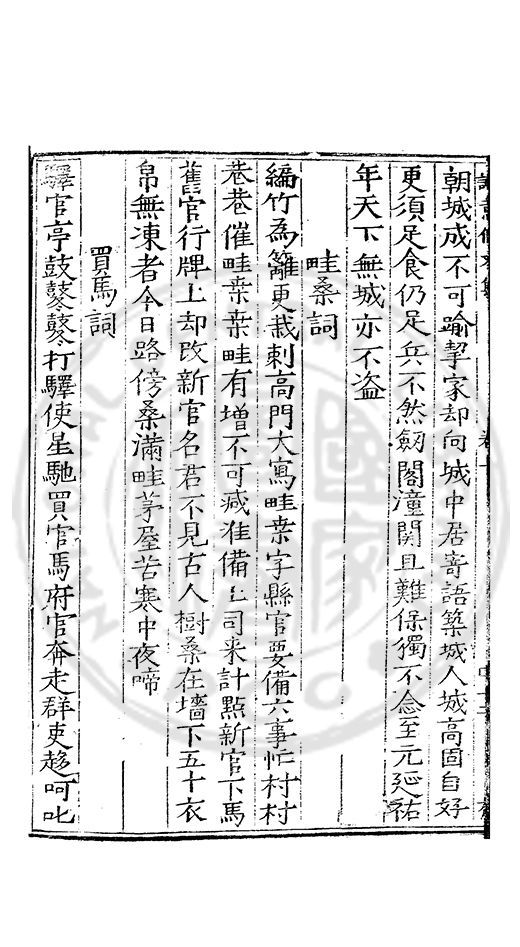 朝城成不可踰挈家却向城中居寄語築城人城高固自好
更須足食仍足兵不然劔閣潼関且難保獨不念至元延祐
年天下無城亦不盗
畦桑詞
編竹為籬更栽刺高門大寫畦桒字縣官要備六事忙村村
巷巷催畦桒桒畦有增不可减准備上司来計㸃新官下馬
舊官行牌上却改新官名君不見古人樹桑在墻下五十衣
帛無凍者今日路傍桑滿畦茅屋苦寒中夜啼
買馬詞
驛官亭鼓鼕鼕打驛使星馳買官馬府官奔走群吏趍呵叱